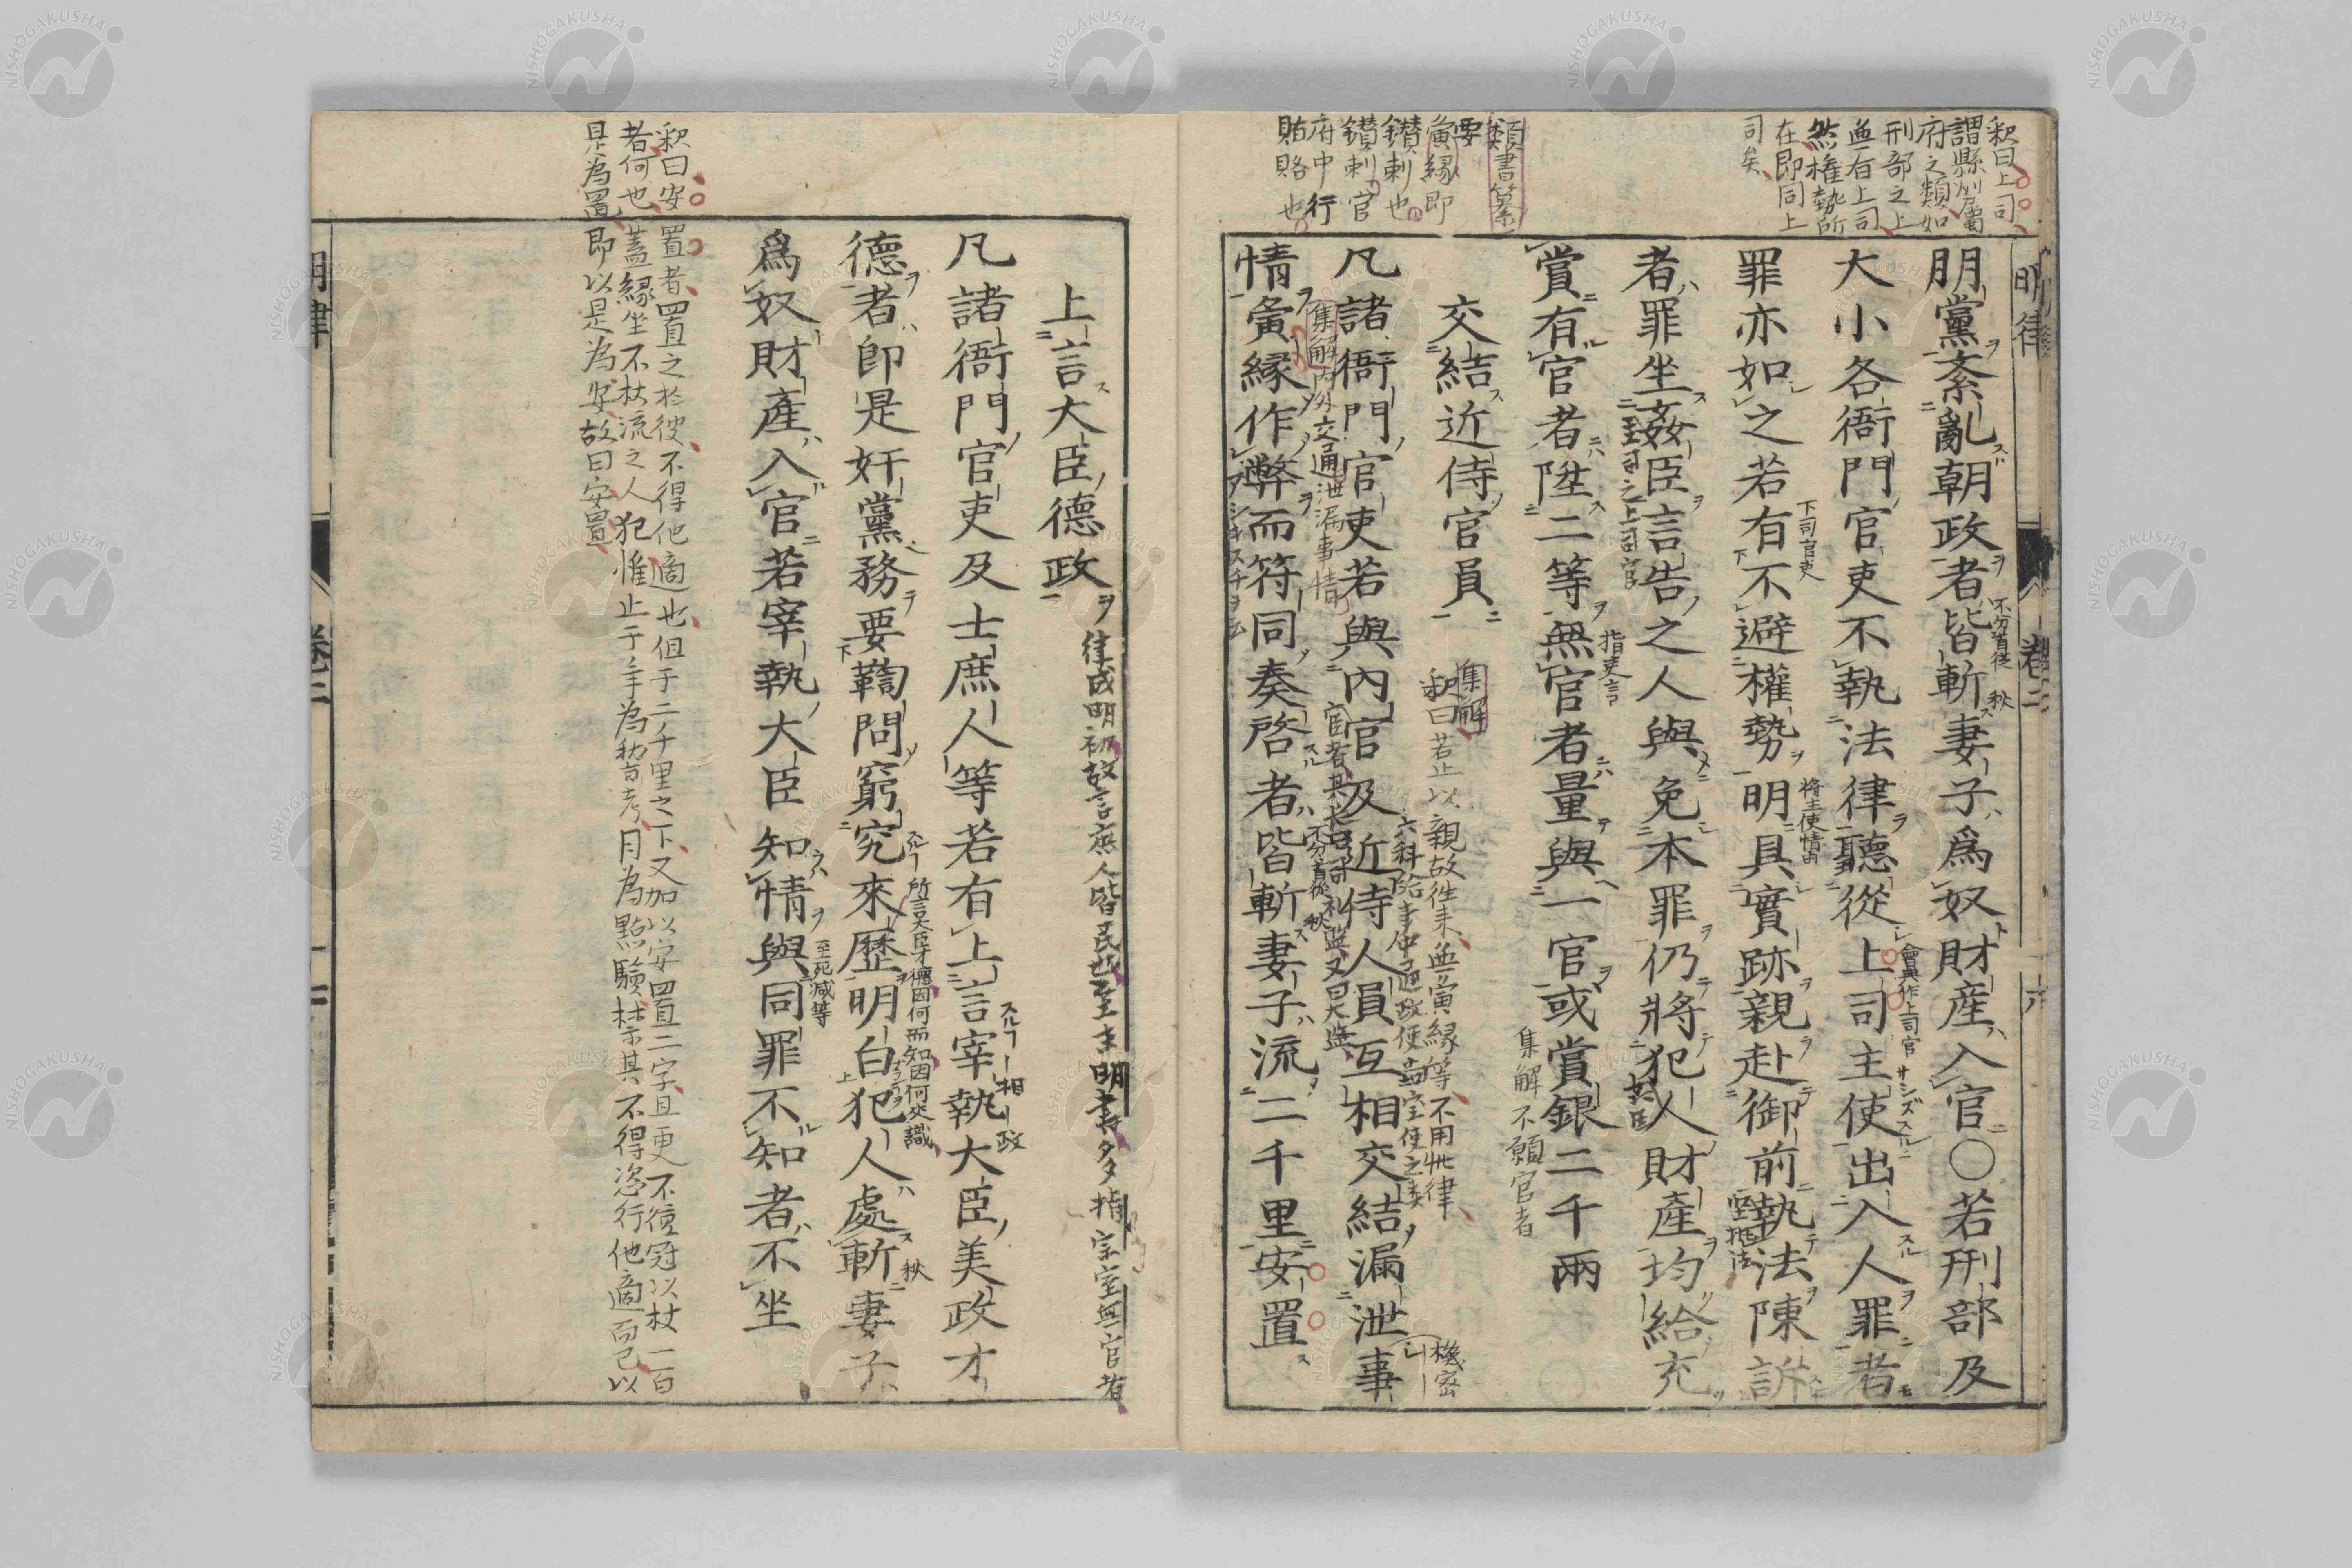 釈曰上司
謂縣州屬
府之類如
刑部之上
無右上司
然権勢所
在即同上
司矣
類書纂
要
夤縁即
鑚刺也
鑚刺官
府中行
賄賂也
明律
卷二
朋黨紊亂朝政者皆斬妻子爲奴財產入官〇若刑部及
不分首從
秋
大小各衙門官吏不執法律聽從上司主使出入人罪者
會典作上司官
罪亦如之若有不避權勢明具實跡親赴御前執法陳訴
下司官吏
将主使情由
者罪坐姦臣言告之人與免本罪仍將犯人財產均給充
賞有官者陞二等無官者量與一官或賞銀二千兩
指吏言
集解不願官者
交結近侍官員
集解
釈曰若止以親故徃来無夤縁等不用此律
凡諸衙門官吏若與內官及近侍人員互相交結漏泄事
機密
情夤縁作弊而符同奏啓者皆斬妻子流二千里安置
集解內外交通泄漏事情
不分首從
秋
上言大臣德政
律成明初故言庶人皆民也至末明書多指宗室無官者
凡諸衙門官吏及士庶人等若有上言宰執大臣美政才
相
政
德者卽是奸黨務要鞫問窮究來歷明白犯人處斬妻子
所言大臣才德因何而知因何交識
秋
爲奴財產入官若宰執大臣知情與同罪不知者不坐
至死減等
釈曰安置者置之於彼不得他適也但于二千里之下又加以安置二字且更不須冠以杖一百
者何也蓋縁坐不杖流之人犯惟止于年為秋首考月為點驗禁其不得恣行他適而已以
是為置即以是為安故曰安置
明律
卷二